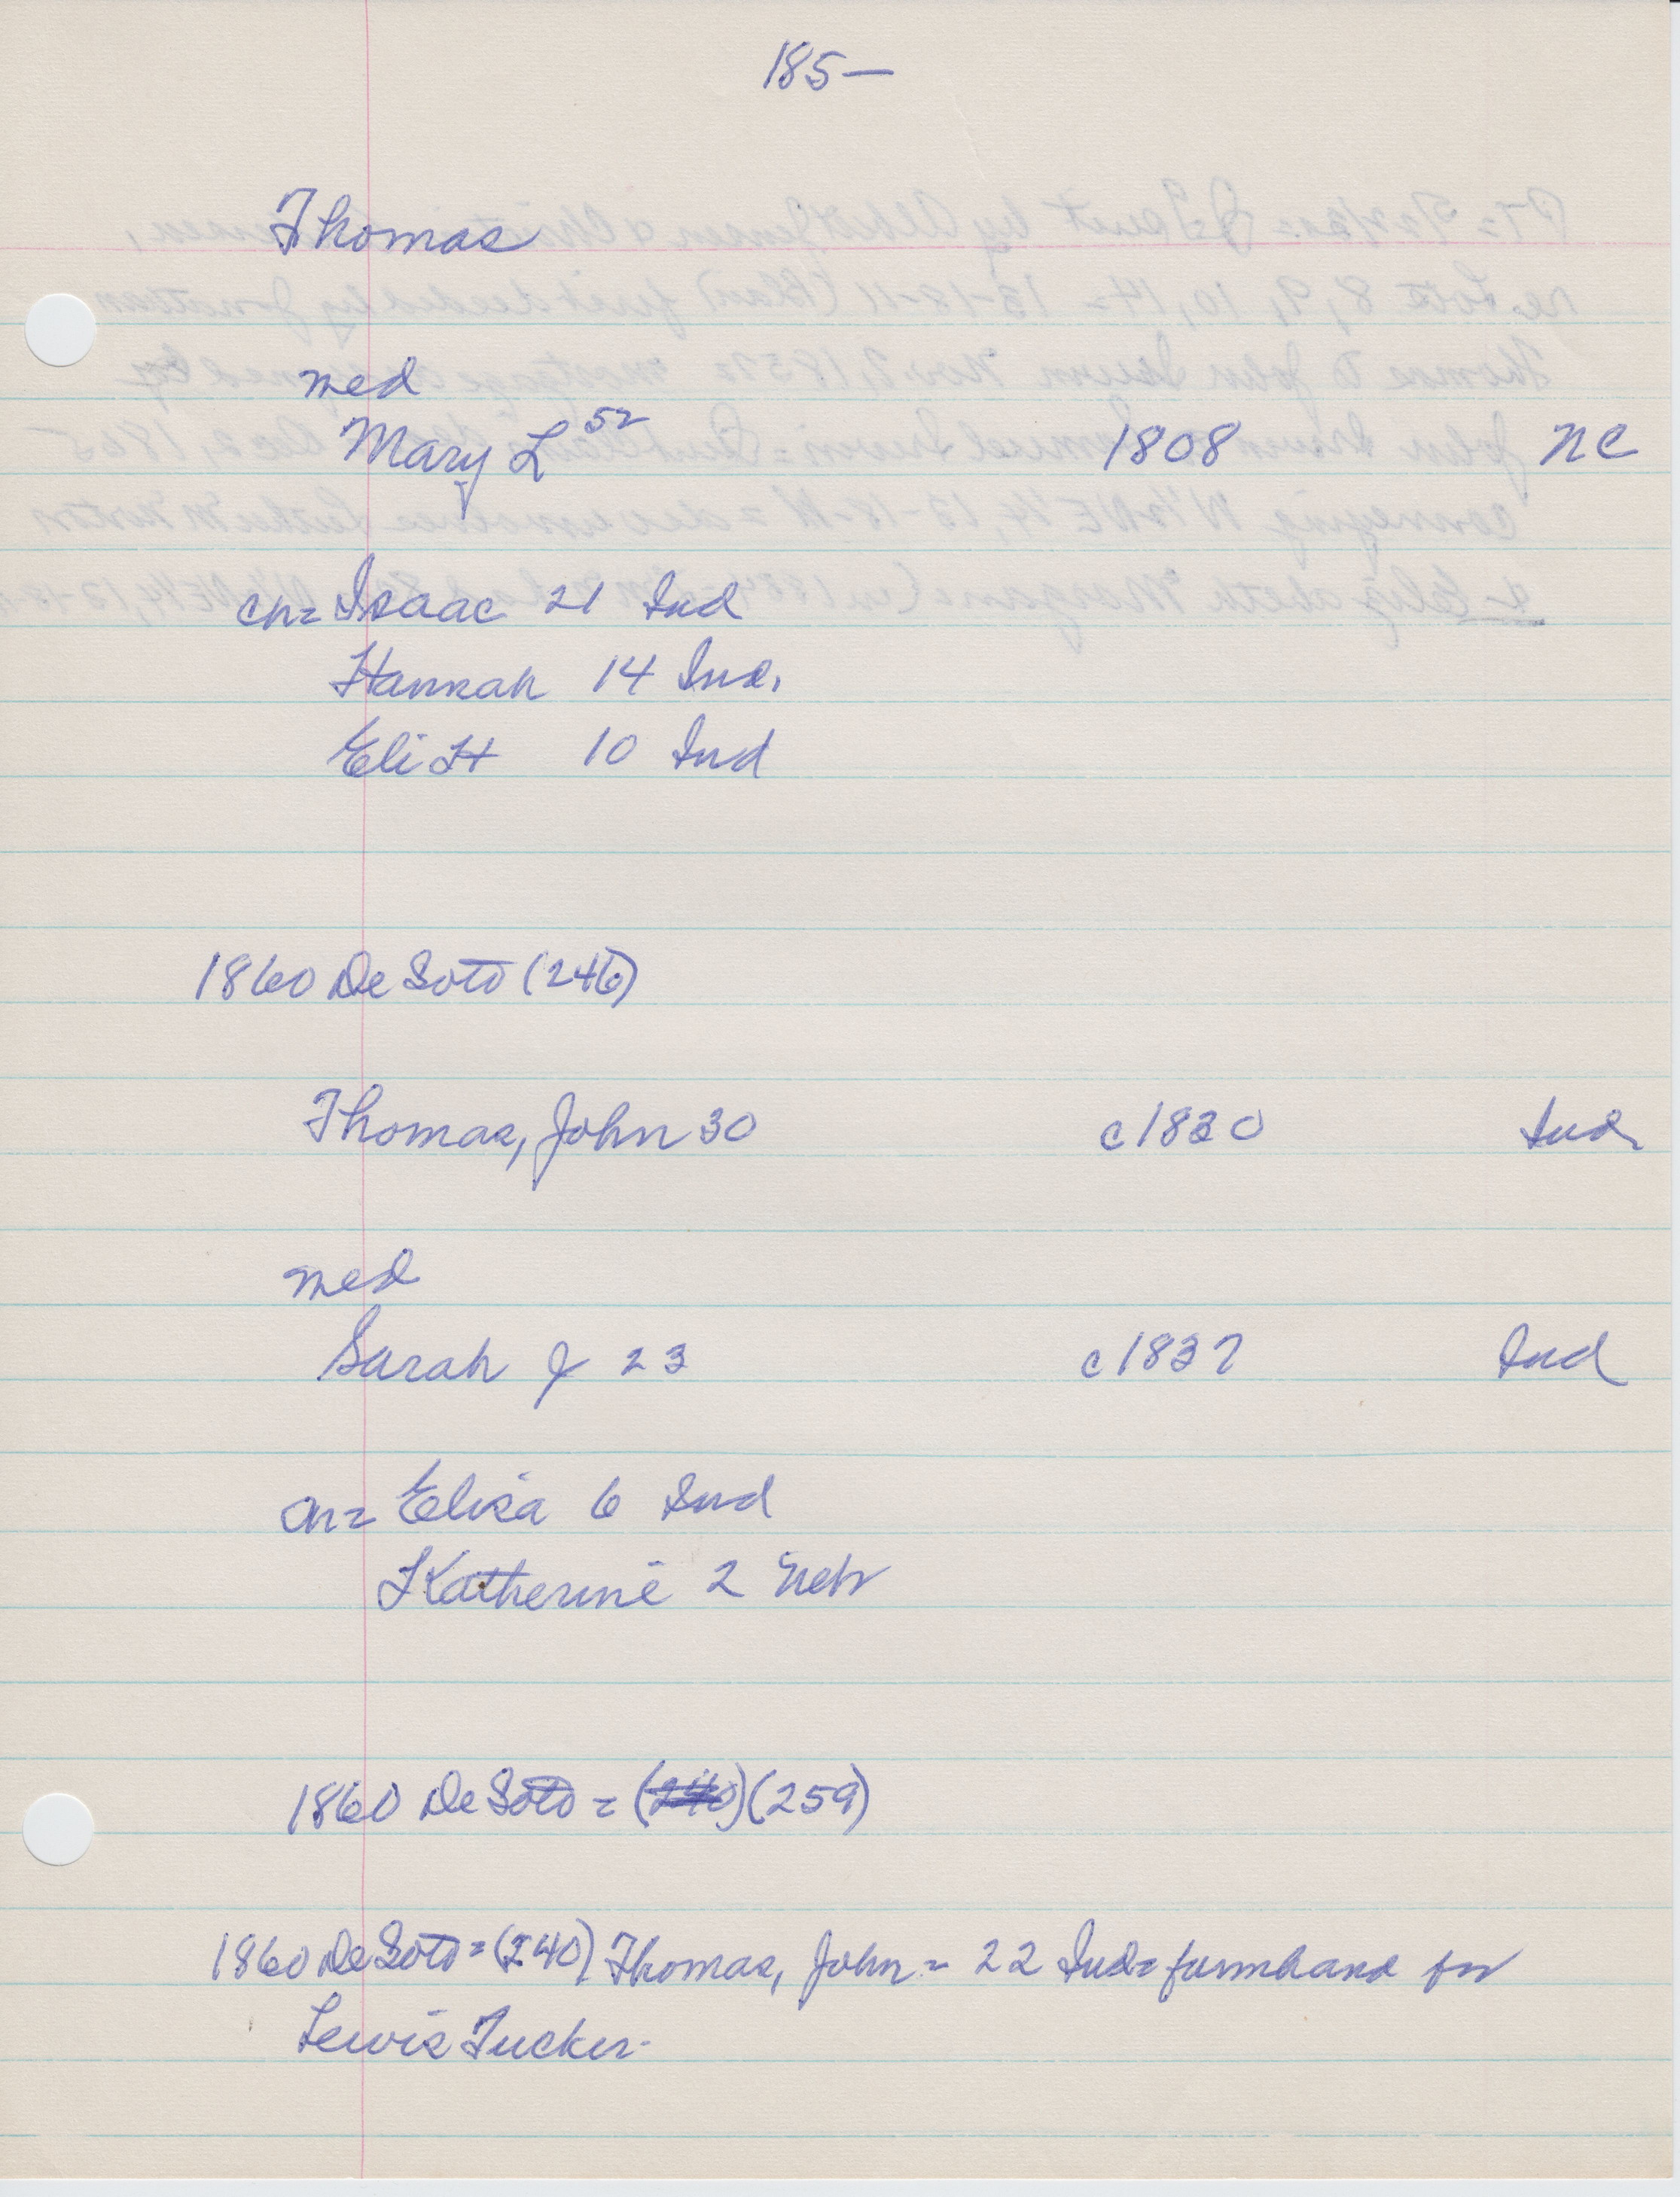 185—
Thomas
med
Mary L 52 1808 NC
ch= Isaac 21 Ind
Hannah 14 Ind.
Eli H 10 Ind
1860 De Soto (246)
Thomas, John 30 c1830 Ind
med
Sarah J 23 c1837 Ind
ch= Elisa 6 Ind
Katherine 2 Neb
1860 De Soto = (240) (259)
1860 De Soto = (240) Thomas, John = 22 Ind= farmhand for
Lewis Tucker.